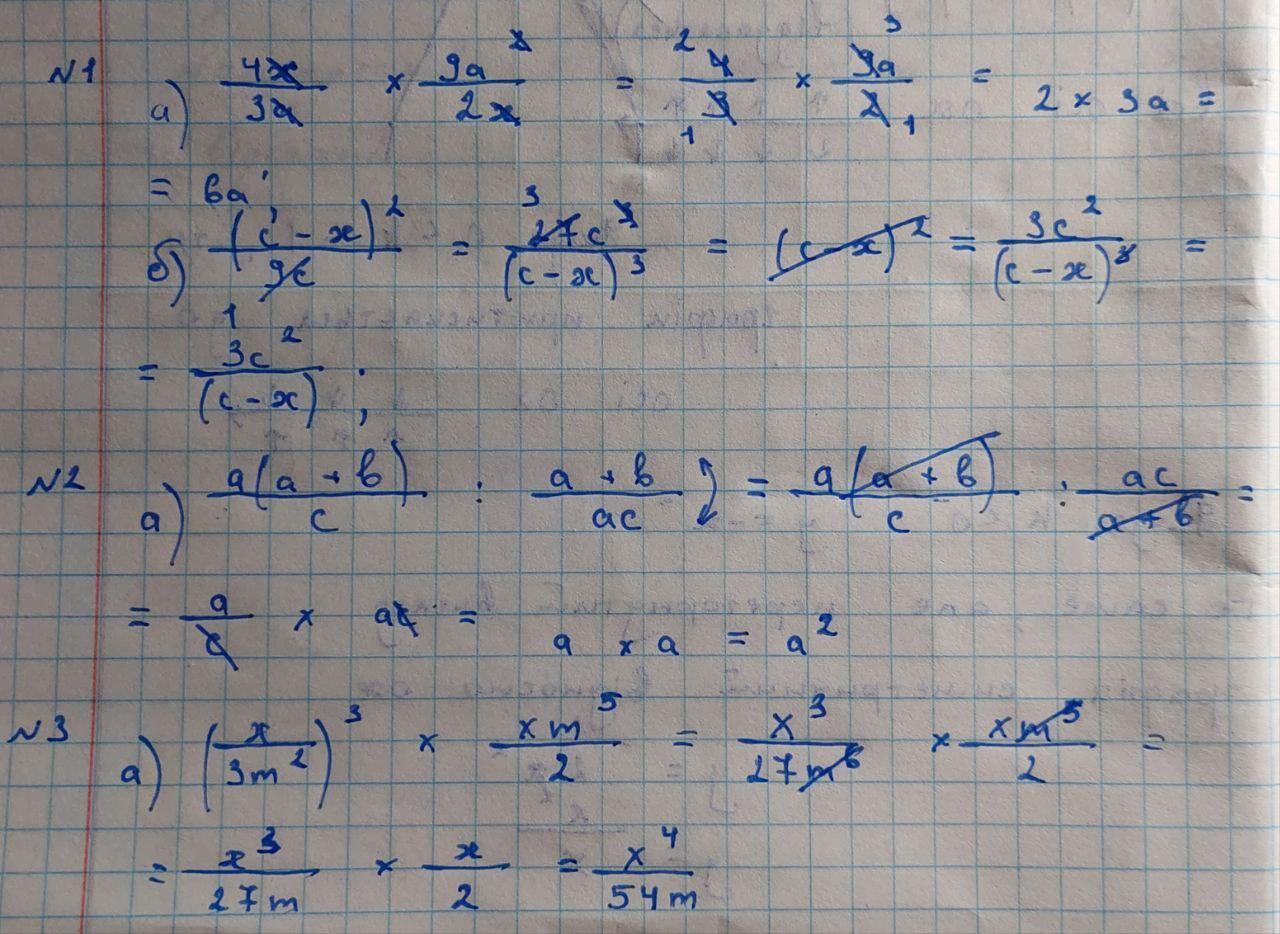 №1 а) 4x/3a × 9a²/2x = ²4/3₁ × 9a³/2₁ = 2 × 3a =
= 6a;
б) (c - x)²/9c = ³27c³/(c - x)³ = (c - x)² = 3c²/(c - x)³ =
= 3c²/(c - x);
№2 а) a(a + b)/c : a + b/ac = a(a + b)/c : ac/a + b =
= a/c × ac = a × a = a²
№3 а) (x/3m²)³ × xm⁵/2 = x³/27m⁶ × xm⁵/2 =
= x³/27m × x/2 = x⁴/54m